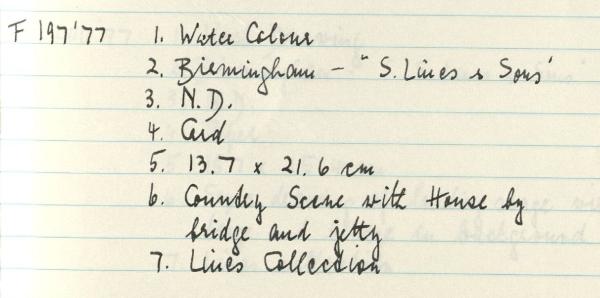 F 197'77 1. Water Colour
2. Birmingham – "S. Lines & Sons'
3. N.D.
4. Card
5. 13.7 x 21.6 cm
6. Country Scene with House by
bridge and jetty
7. Lines Collection